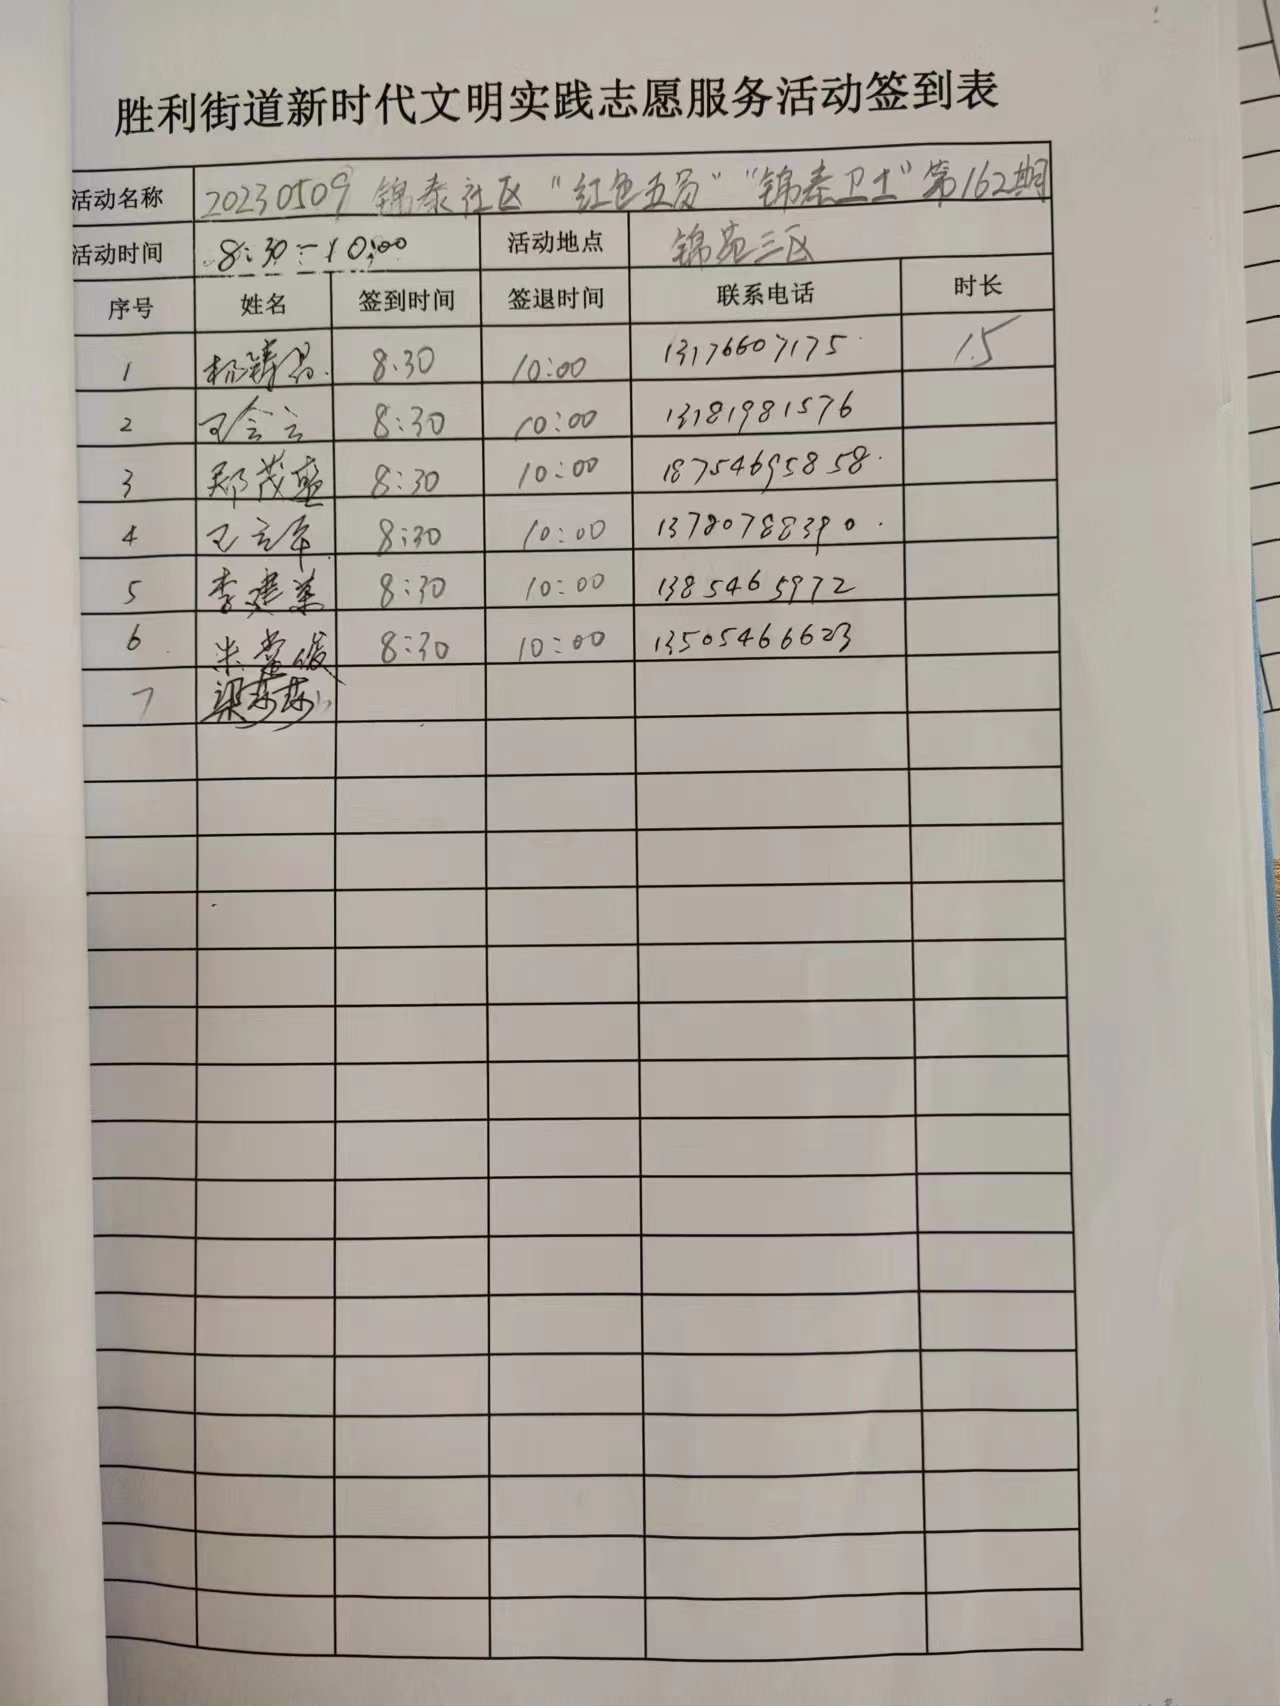 胜利街道新时代文明实践志愿服务活动签到表
活动名称 20230509 锦泰社区"红色五员""锦泰卫士"第162期
活动时间 8:30-10:00 活动地点 锦苑三区
序号 姓名 签到时间 签退时间 联系电话 时长
1 8:30 10:00 13176607175 1.5
2 王会云 8:30 10:00 13181981576
3 郑茂盛 8:30 10:00 18754695858
4 王立军 8:30 10:00 13780788390
5 李建英 8:30 10:00 1385465972
6 8:30 10:00 13505466623
7 梁莎莎